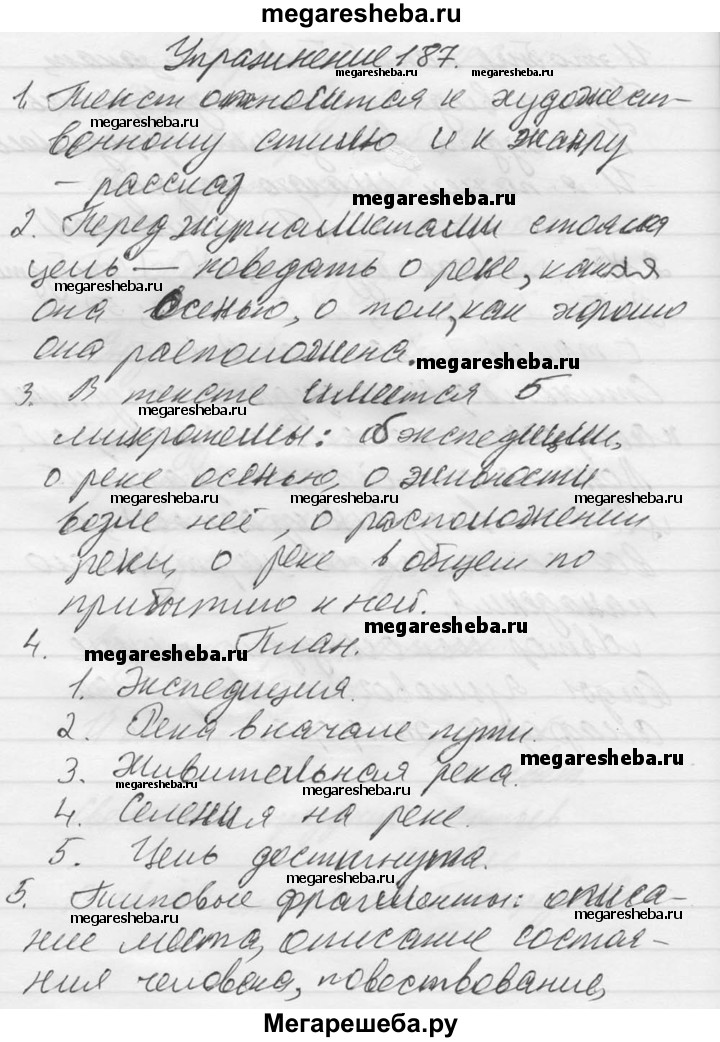 megaresheba.ru
Упражнение 187.
megaresheba.ru megaresheba.ru
1. Текст относится к художест-
megaresheba.ru
венному стилю и к жанру
- рассказ
megaresheba.ru
2. Перед журналистами стояла
цель — поведать о реке, какая
megaresheba.ru
она осенью, о том, как хорошо
она расположена.
megaresheba.ru
3. В тексте имеется 5
megaresheba.ru
микротемы: об экспедиции,
о реке осенью, о живности
megaresheba.ru megaresheba.ru megaresheba.ru
возле неё, о расположении
реки, о реке в общем по
прибытию к ней.
megaresheba.ru
4. План.
megaresheba.ru
1. Экспедиция.
2. Река вначале пути.
megaresheba.ru
3. Живительная река.
megaresheba.ru
4. Селения на реке.
5. Цель достигнута.
megaresheba.ru
5. Типовые фрагменты: описа-
megaresheba.ru megaresheba.ru
ние места, описание состоя-
ния человека, повествование,
megaresheba.ru
Мегарешеба.ру